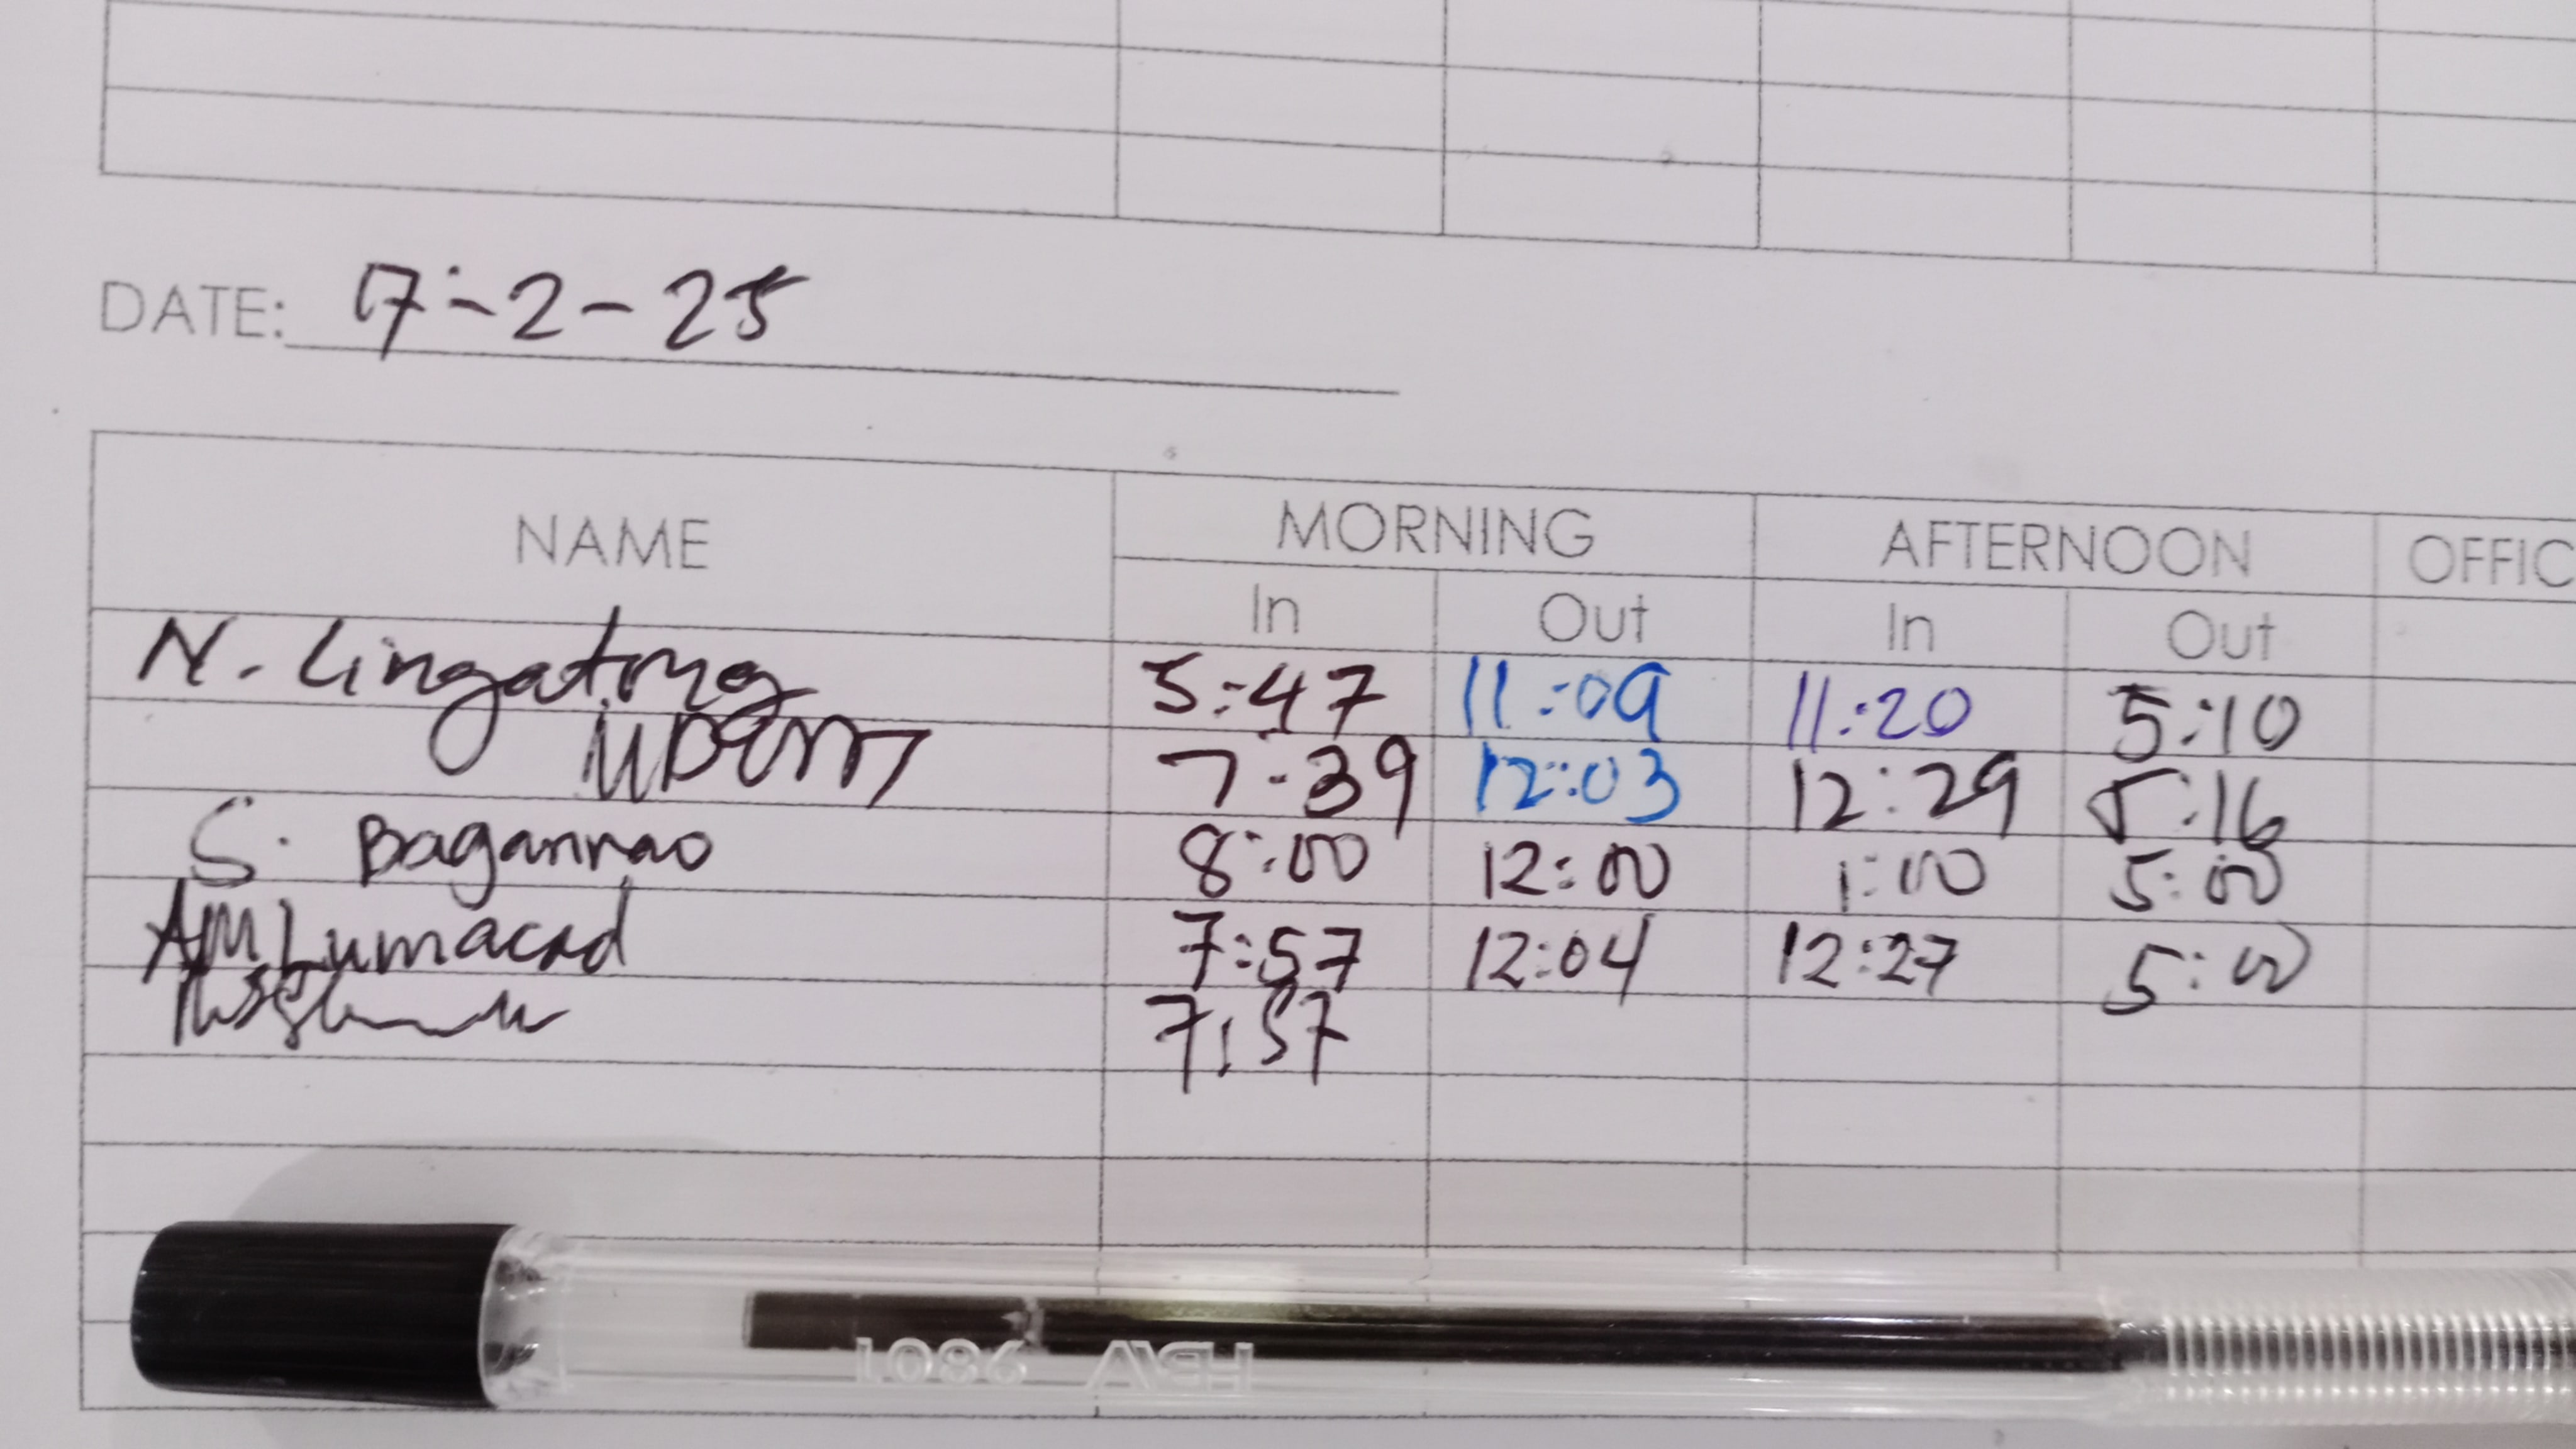 DATE: 7-2-25
NAME MORNING AFTERNOON OFFIC
In Out In Out
N. Lingatong 5:47 11:09 11:20 5:10
7:39 12:03 12:29 5:16
S. Bagannao 8:00 12:00 1:00 5:00
AM Lumacad 7:57 12:04 12:27 5:00
7:57
HBW 9801